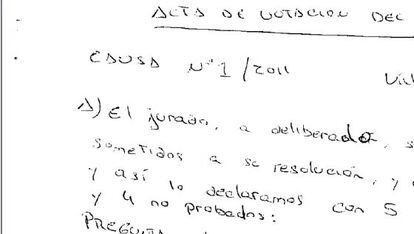 ACTA DE VOTACION DEL
CAUSA Nº 1/2011
A) El jurado, a deliberado, s
sometidos a se resolución, y
y así lo declaramos con 5
y 4 no probados:
PREGUNTA